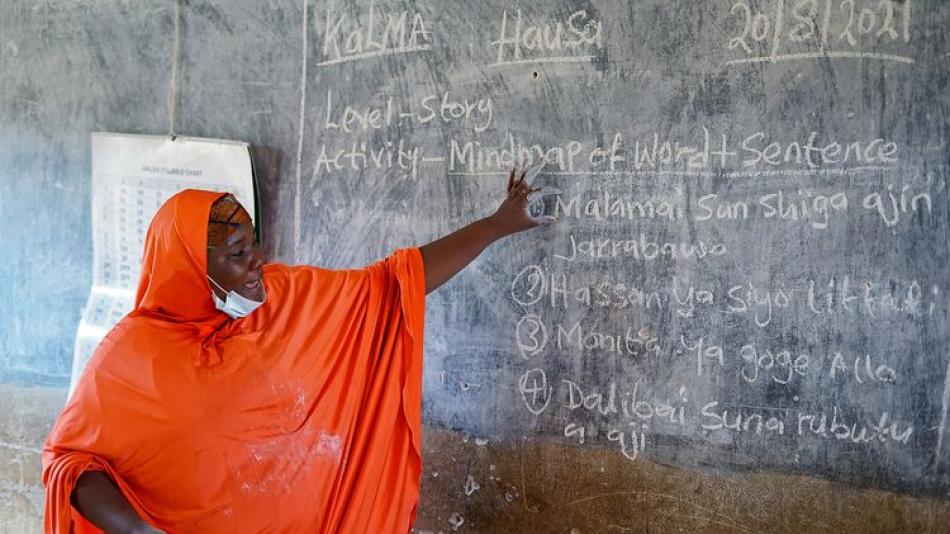 KaLMA HauSa 20/8/2021
Level-Story
Activity-Mindmap of Word+Sentence
Malamai Sun shiga ajin
Jarrabawa
② Hassan ya siyo littafi
③ Monita ya goge Allo
④ Dalibai Suna rubutu
a aji